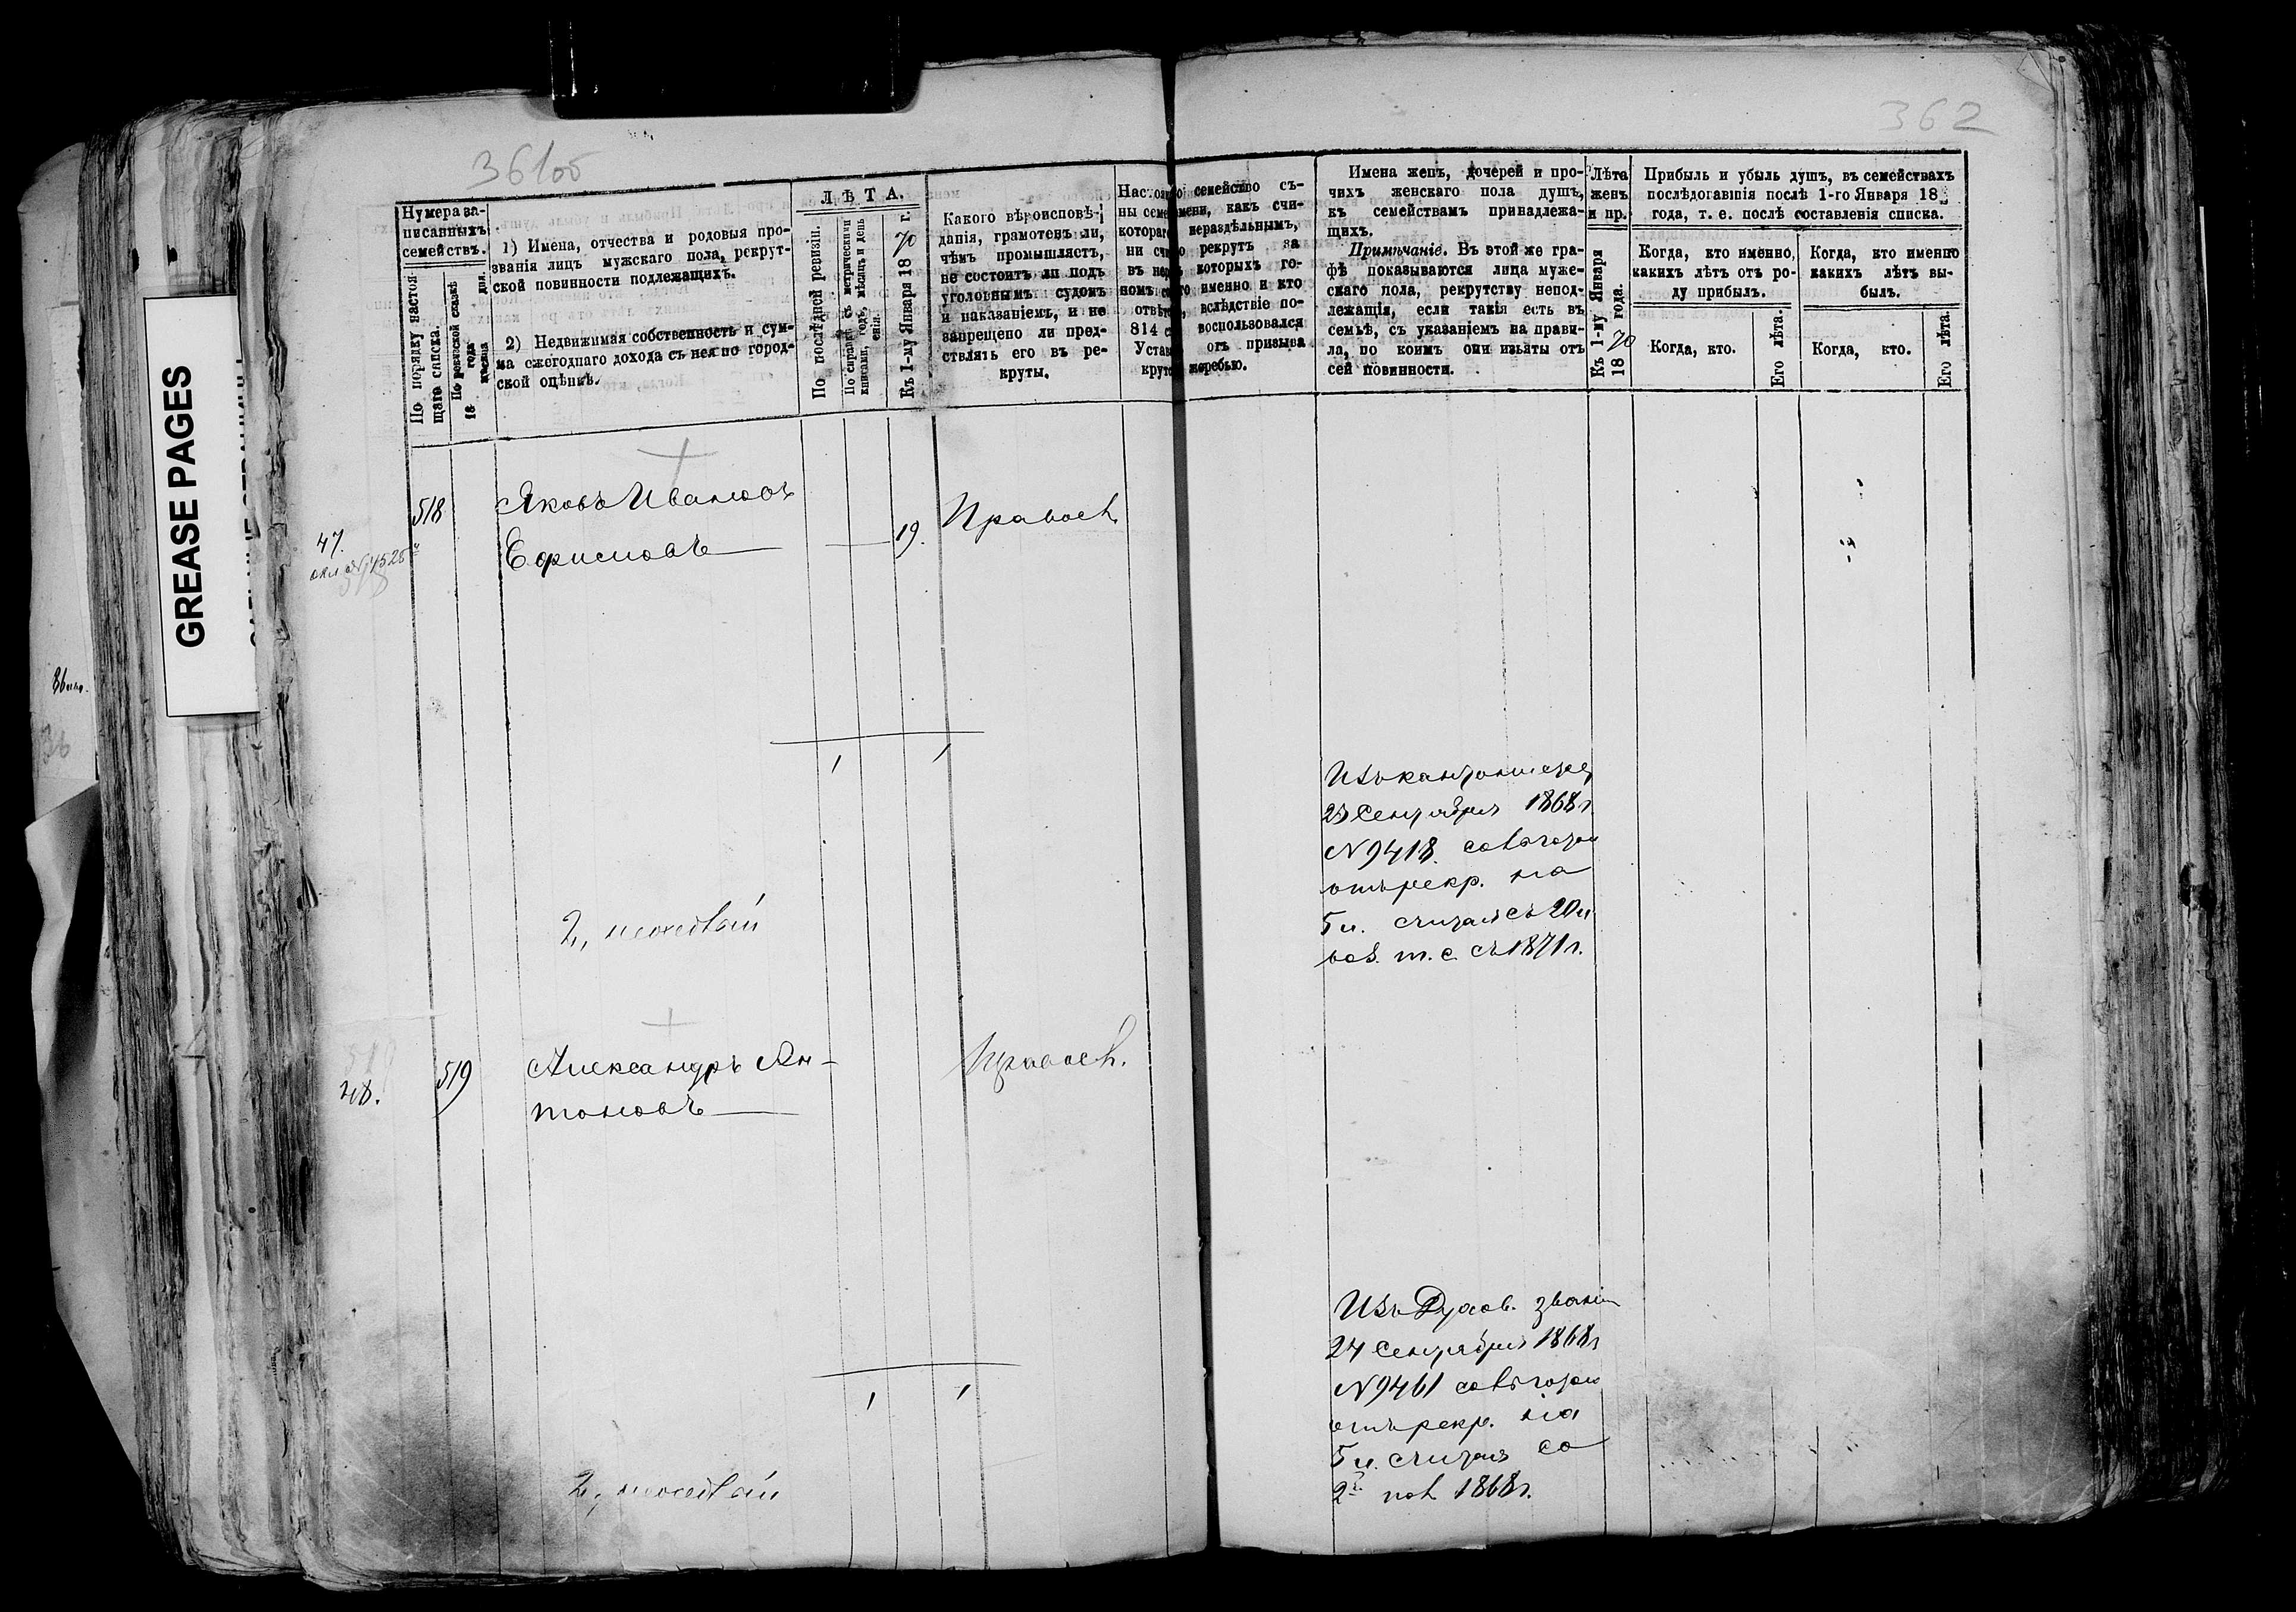 361об
362
GREASE PAGES
Нумера за-
писанныхъ
семействъ.
По порядку настоя-
щаго списка.
По ревизской сказкѣ
18 года
мѣсяца дня.
1) Имена, отчества и родовыя про-
званія лицъ мужскаго пола, рекрут-
ской повинности подлежащихъ.
2) Недвижимая собственность и сум-
ма ежегоднаго дохода съ нея по город-
ской оцѣнкѣ.
ЛѢТА.
По послѣдней ревизіи.
По справкѣ съ метрическими
книгами, годъ, мѣсяцъ и день
Къ 1-му Января 1870 г.
Какого вѣроисповѣ-
данія, грамотенъ ли,
чѣмъ промышляетъ,
не состоитъ ли подъ
уголовнымъ судомъ
и наказаніемъ, и не
запрещено ли пред-
ставлять его въ ре-
круты.
семейство съ-
какъ счи-
нераздѣльнымъ,
рекрутъ за
которыхъ го-
именно и кто
вслѣдствіе по-
814 воспользовался
отъ призыва
жеребью.
Имена женъ, дочерей и про-
чихъ женскаго пола душъ,
къ семействамъ принадлежа-
щихъ.
Примѣчаніе. Въ этой же гра-
фѣ показываются лица муже-
скаго пола, рекрутству непод-
лежащія, если такія есть въ
семьѣ, съ указаніемъ на прави-
ла, по коимъ они изъяты отъ
сей повинности.
Лѣта
женъ
и пр.
Къ 1-му Января
1870 года.
Прибыль и убыль душъ, въ семействахъ
послѣдовавшія послѣ 1-го Января 18
года, т. е. послѣ составленія списка.
Когда, кто именно,
какихъ лѣтъ отъ ро-
ду прибылъ.
Когда, кто именно
какихъ лѣтъ вы-
былъ.
Когда, кто.
Его лѣта.
Когда, кто.
Его лѣта.
47.
518
Яковъ Ивановъ
Ефимовъ
19.
Правосл.
Изъ кантонистовъ
23 Сентября 1868 г.
N 9418.
отъ рекр. на
5 л. считая съ 20 л.
воз. т. е. съ 1871 г.
2,
48.
519
Александръ Ан-
тоновъ
Правосл.
Изъ Духов. званія
24 Сентября 1868 г.
N 9461
отъ рекр. на
5 л. считая со
2й пол 1868 г.
2,